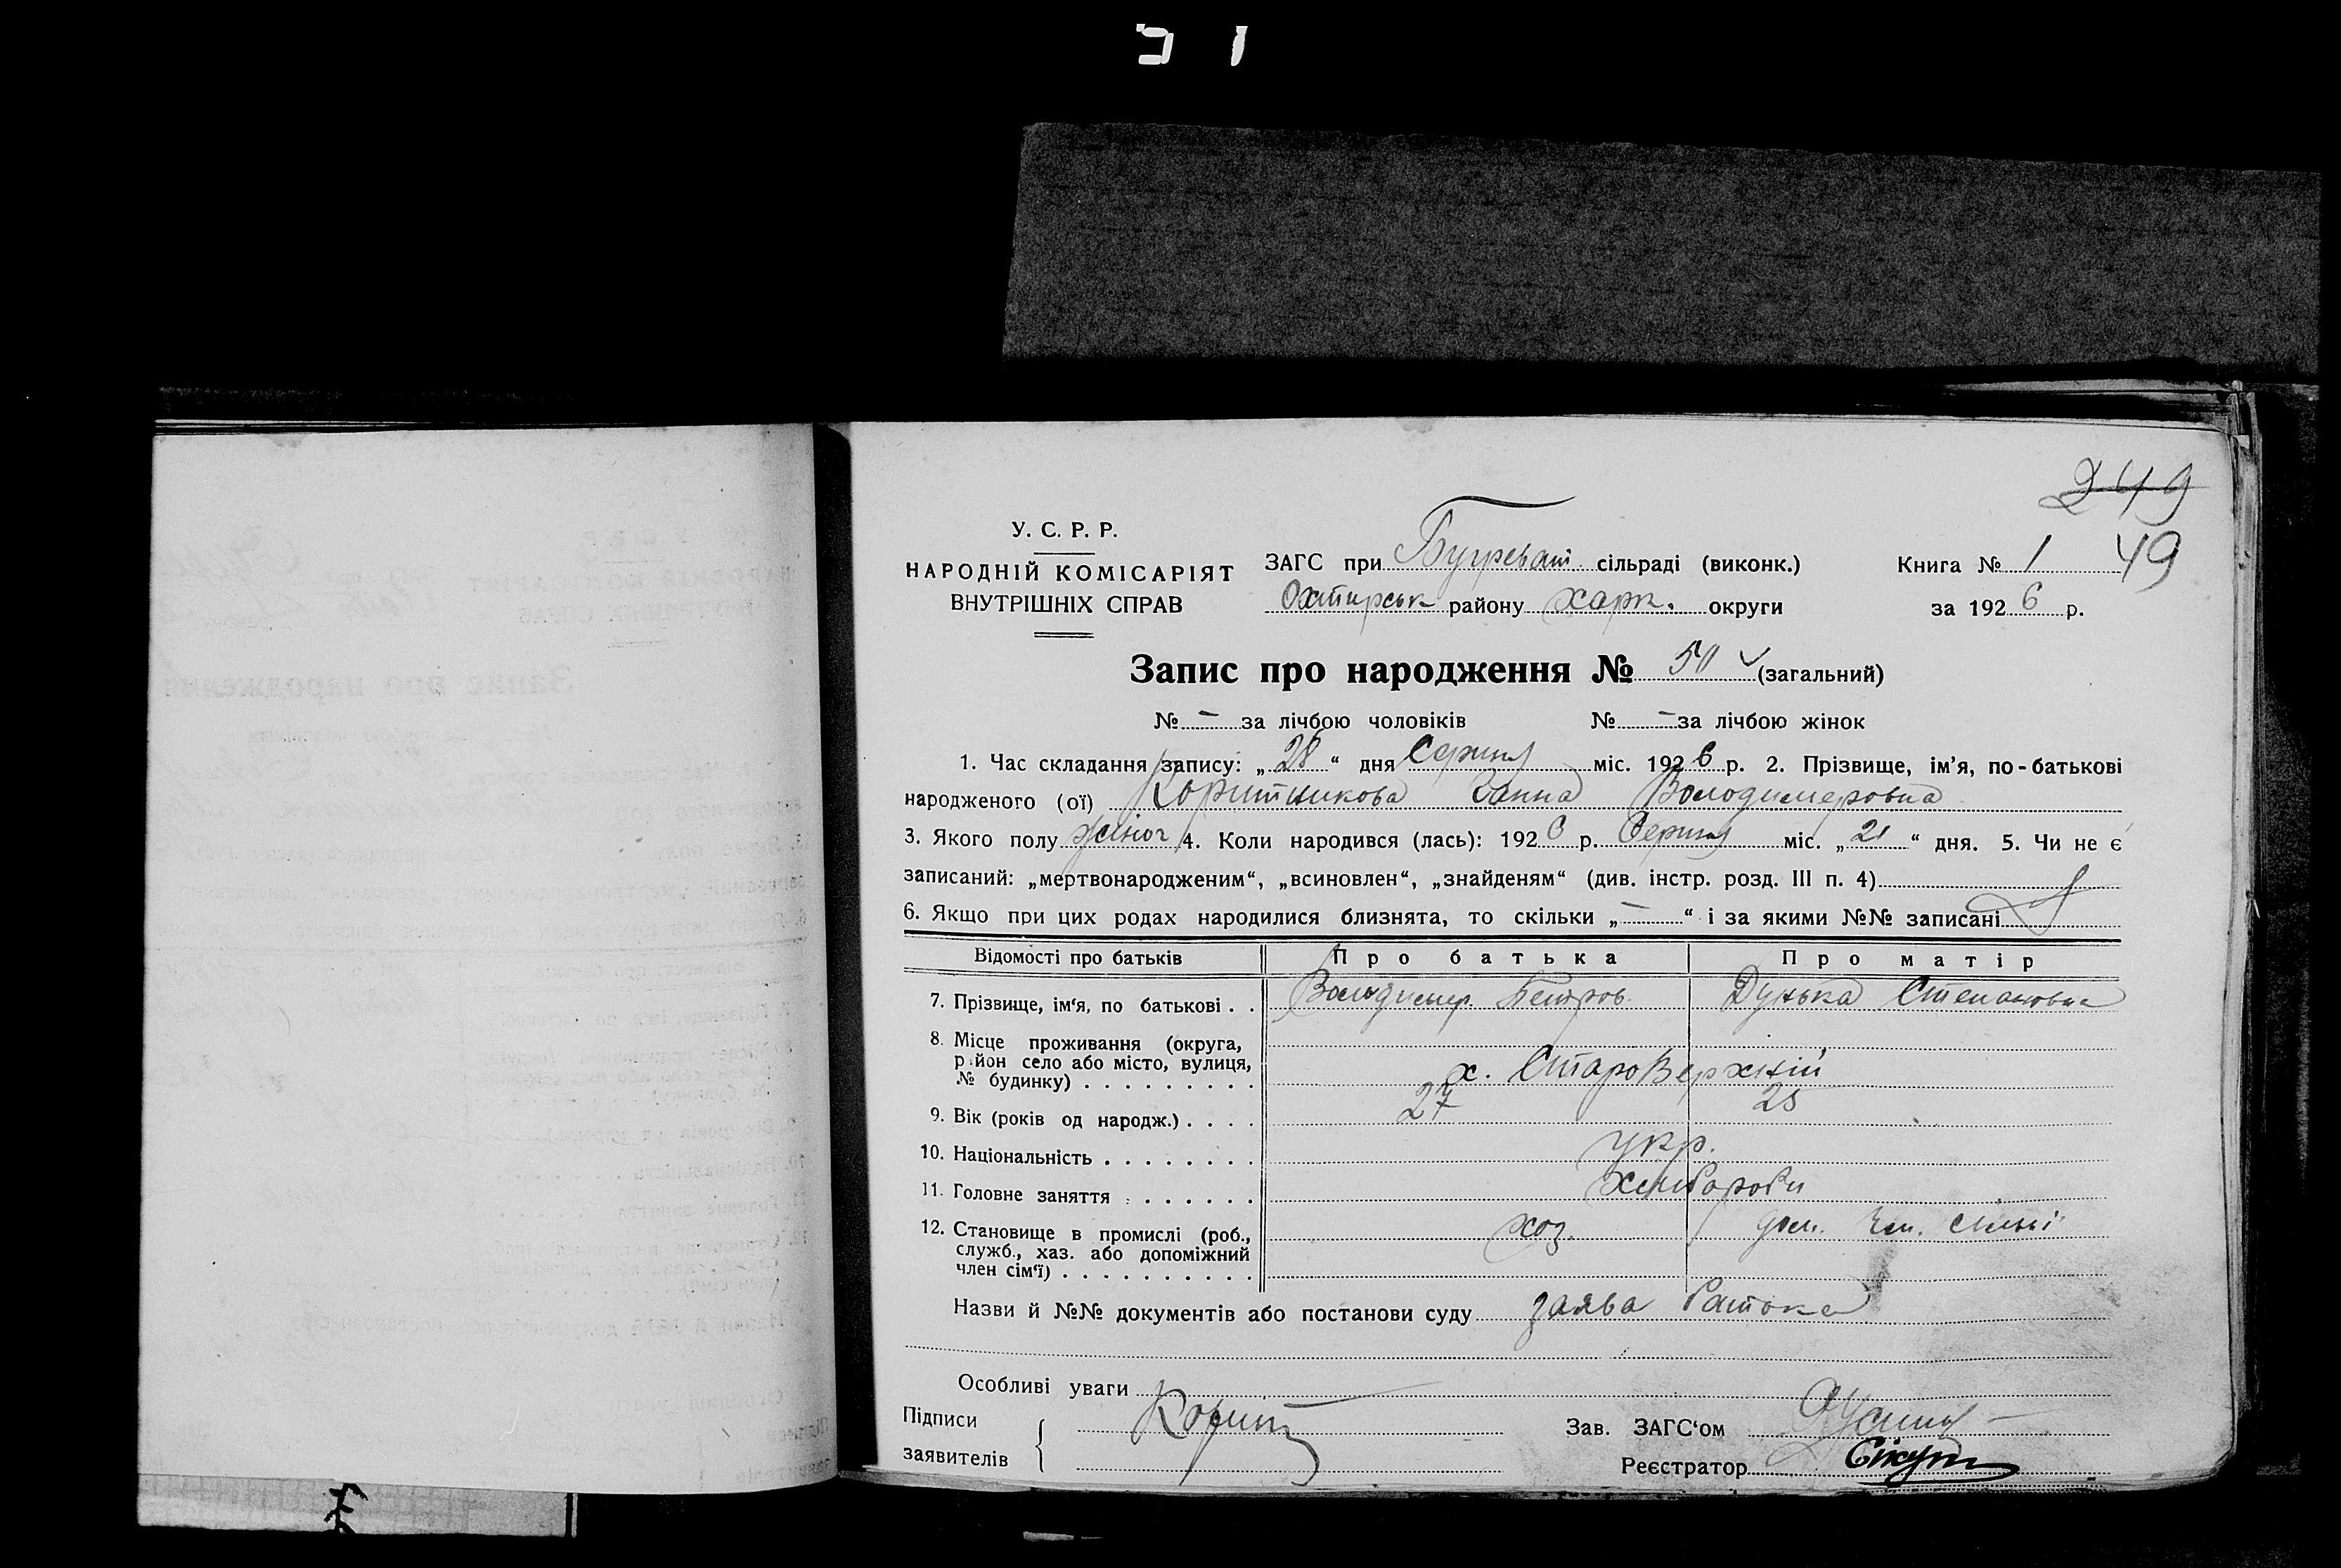 249
У. С. Р. Р.
НАРОДНІЙ КОМІСАРІЯТ
ВНУТРІШНІХ СПРАВ
ЗАГС при Бугреват. сільраді (виконк.)
Охтирськ району Харк. округи
Книга № 1 49
за 1926 р.
Запис про народження № 50 (загальний)
№ – за лічбою чоловіків № – за лічбою жінок
1. Час складання запису: „28“ дня Серпня міс. 1926 р. 2. Прізвище, ім’я, по-батькові
народженого (ої) Коритникова Ганна Володимеровна
3. Якого полу жіноч 4. Коли народився (лась): 1926 р. Серпня міс. „21“ дня. 5. Чи не є
записаний: „мертвонародженим“, „всиновлен“, „знайденям“ (див. інстр. розд. III п. 4)
6. Якщо при цих родах народилися близнята, то скільки „–“ і за якими №№ записані
Відомості про батьків Про батька Про матір
7. Прізвище, ім‘я, по батькові . . Володимер Петров. Дунька Степановна
8. Місце проживання (округа,
район село або місто, вулиця,
№ будинку) . . . . . . . . . х. СтароВерхній
9. Вік (років од народж.) . . . . 27 25
10. Національність . . . . . . . . укр.
11. Головне заняття . . . . . . . Хлібороби
12. Становище в промислі (роб., хоз. доп. чл. сімьі
служб., хаз. або допоміжний
член сім‘ї) . . . . . . . . . .
Назви й №№ документів або постанови суду заява батька
Особливі уваги
Підписи Корит
заявителів
Зав. ЗАГС‘ом
Реєстратор